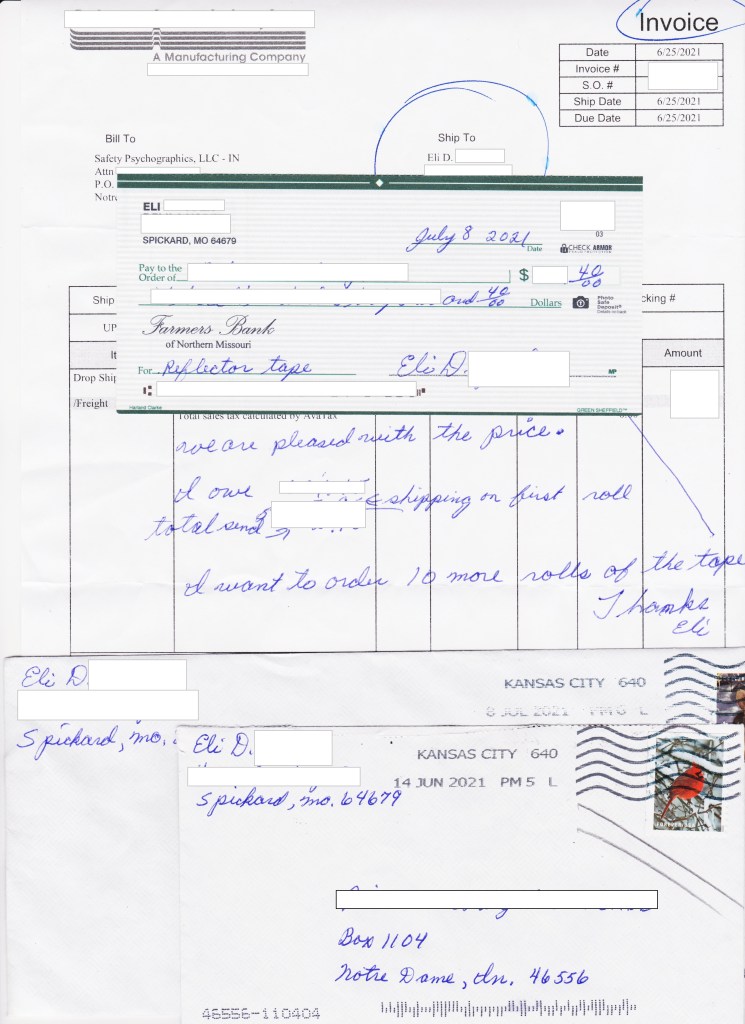 Invoice
A Manufacturing Company
Date 6/25/2021
Invoice #
S.O. #
Ship Date 6/25/2021
Due Date 6/25/2021
Bill To
Ship To
Safety Psychographics, LLC - IN
Eli D.
Attn
P.O.
ELI
SPICKARD, MO 64679
03
July 8 2021 Date
CHECK ARMOR
Pay to the
Order of $ 40/00
and 40/00 Dollars
Photo
Safe
Deposit®
Details on back
Farmers Bank
of Northern Missouri
For Reflector tape Eli D.
MP
Harland Clarke
GREEN SHEFFIELD™
Ship
cking #
UP
It
Amount
Drop Ship
/Freight
Total sales tax calculated by AvaTax
we are pleased with the price.
I owe shipping on first roll
total send $
I want to order 10 more rolls of the tape
Thanks
Eli
Eli D.
Spickard, mo.
KANSAS CITY 640
8 JUL 2021 PM 6 L
Eli D.
Spickard, mo. 64679
KANSAS CITY 640
14 JUN 2021 PM 5 L
FOREVER
Box 1104
Notre Dame, In. 46556
46556-110404